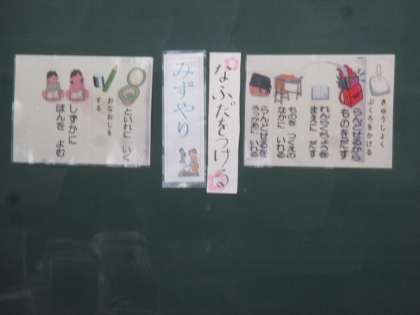 きゅうしょく
ぶくろをかける
らんどせるから
ものをだす
れんらくちょうを
まえに だす
ものを つくえの
なかに いれる
らんどせるを
ろっかーに いれる
なふだをつける
みずやり
といれに いく
おなおしを
する
しずかに
ほんを よむ